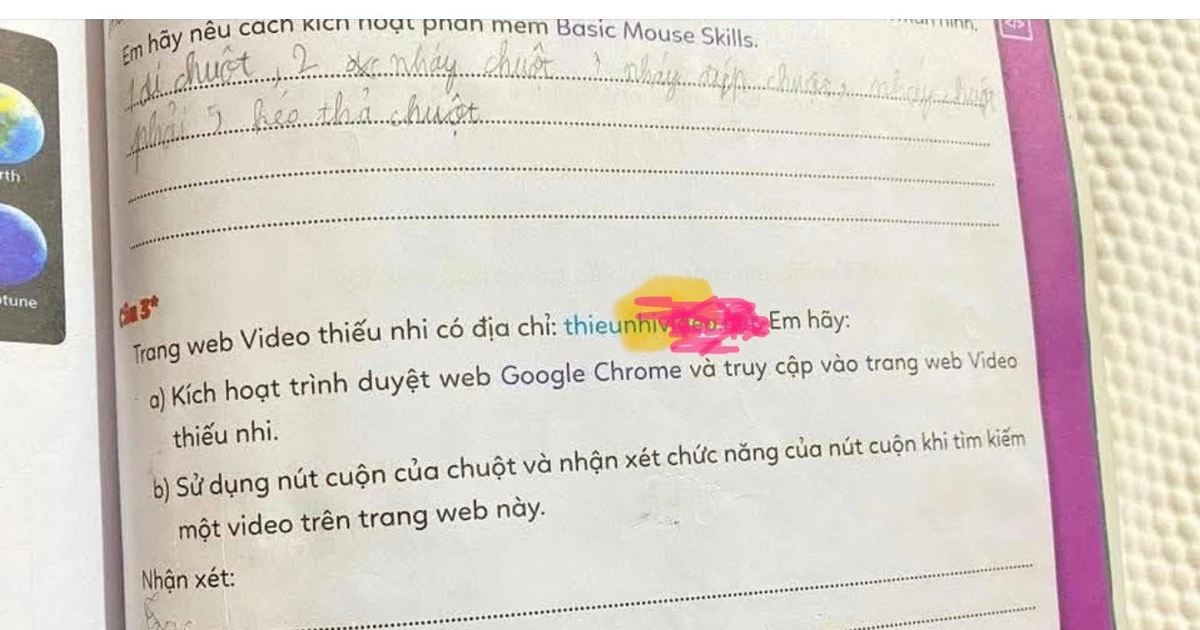 Em hãy nêu cách kích hoạt phần mềm Basic Mouse Skills.
1 di chuột, 2 nháy chuột 3 nháy đúp chuột, nháy chuột
phải 5, kéo thả chuột
rth
tune
Câu 3*
Trang web Video thiếu nhi có địa chỉ: thieunhivideo. Em hãy:
a) Kích hoạt trình duyệt web Google Chrome và truy cập vào trang web Video
thiếu nhi.
b) Sử dụng nút cuộn của chuột và nhận xét chức năng của nút cuộn khi tìm kiếm
một video trên trang web này.
Nhận xét: